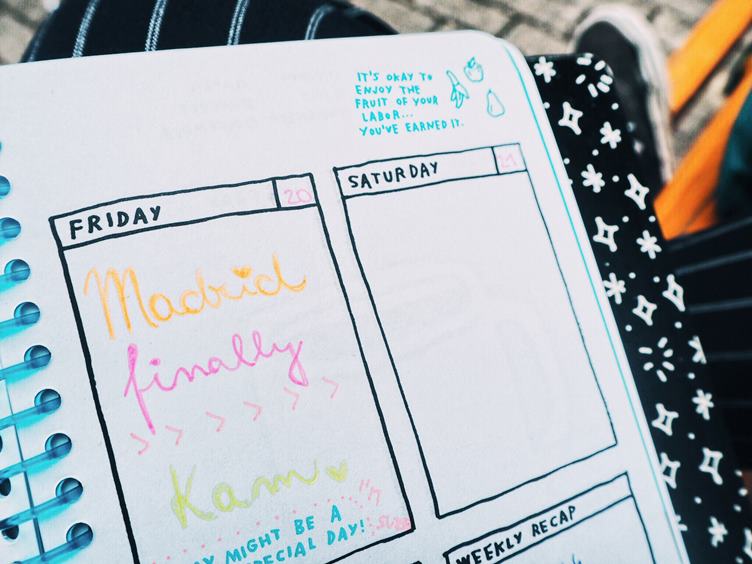 IT'S OKAY TO
ENJOY THE
FRUIT OF YOUR
LABOR...
YOU'VE EARNED IT.
FRIDAY 20
Madrid
finally
> > > > > >
Kam
MIGHT BE A
SPECIAL DAY!
SATURDAY 21
WEEKLY RECAP